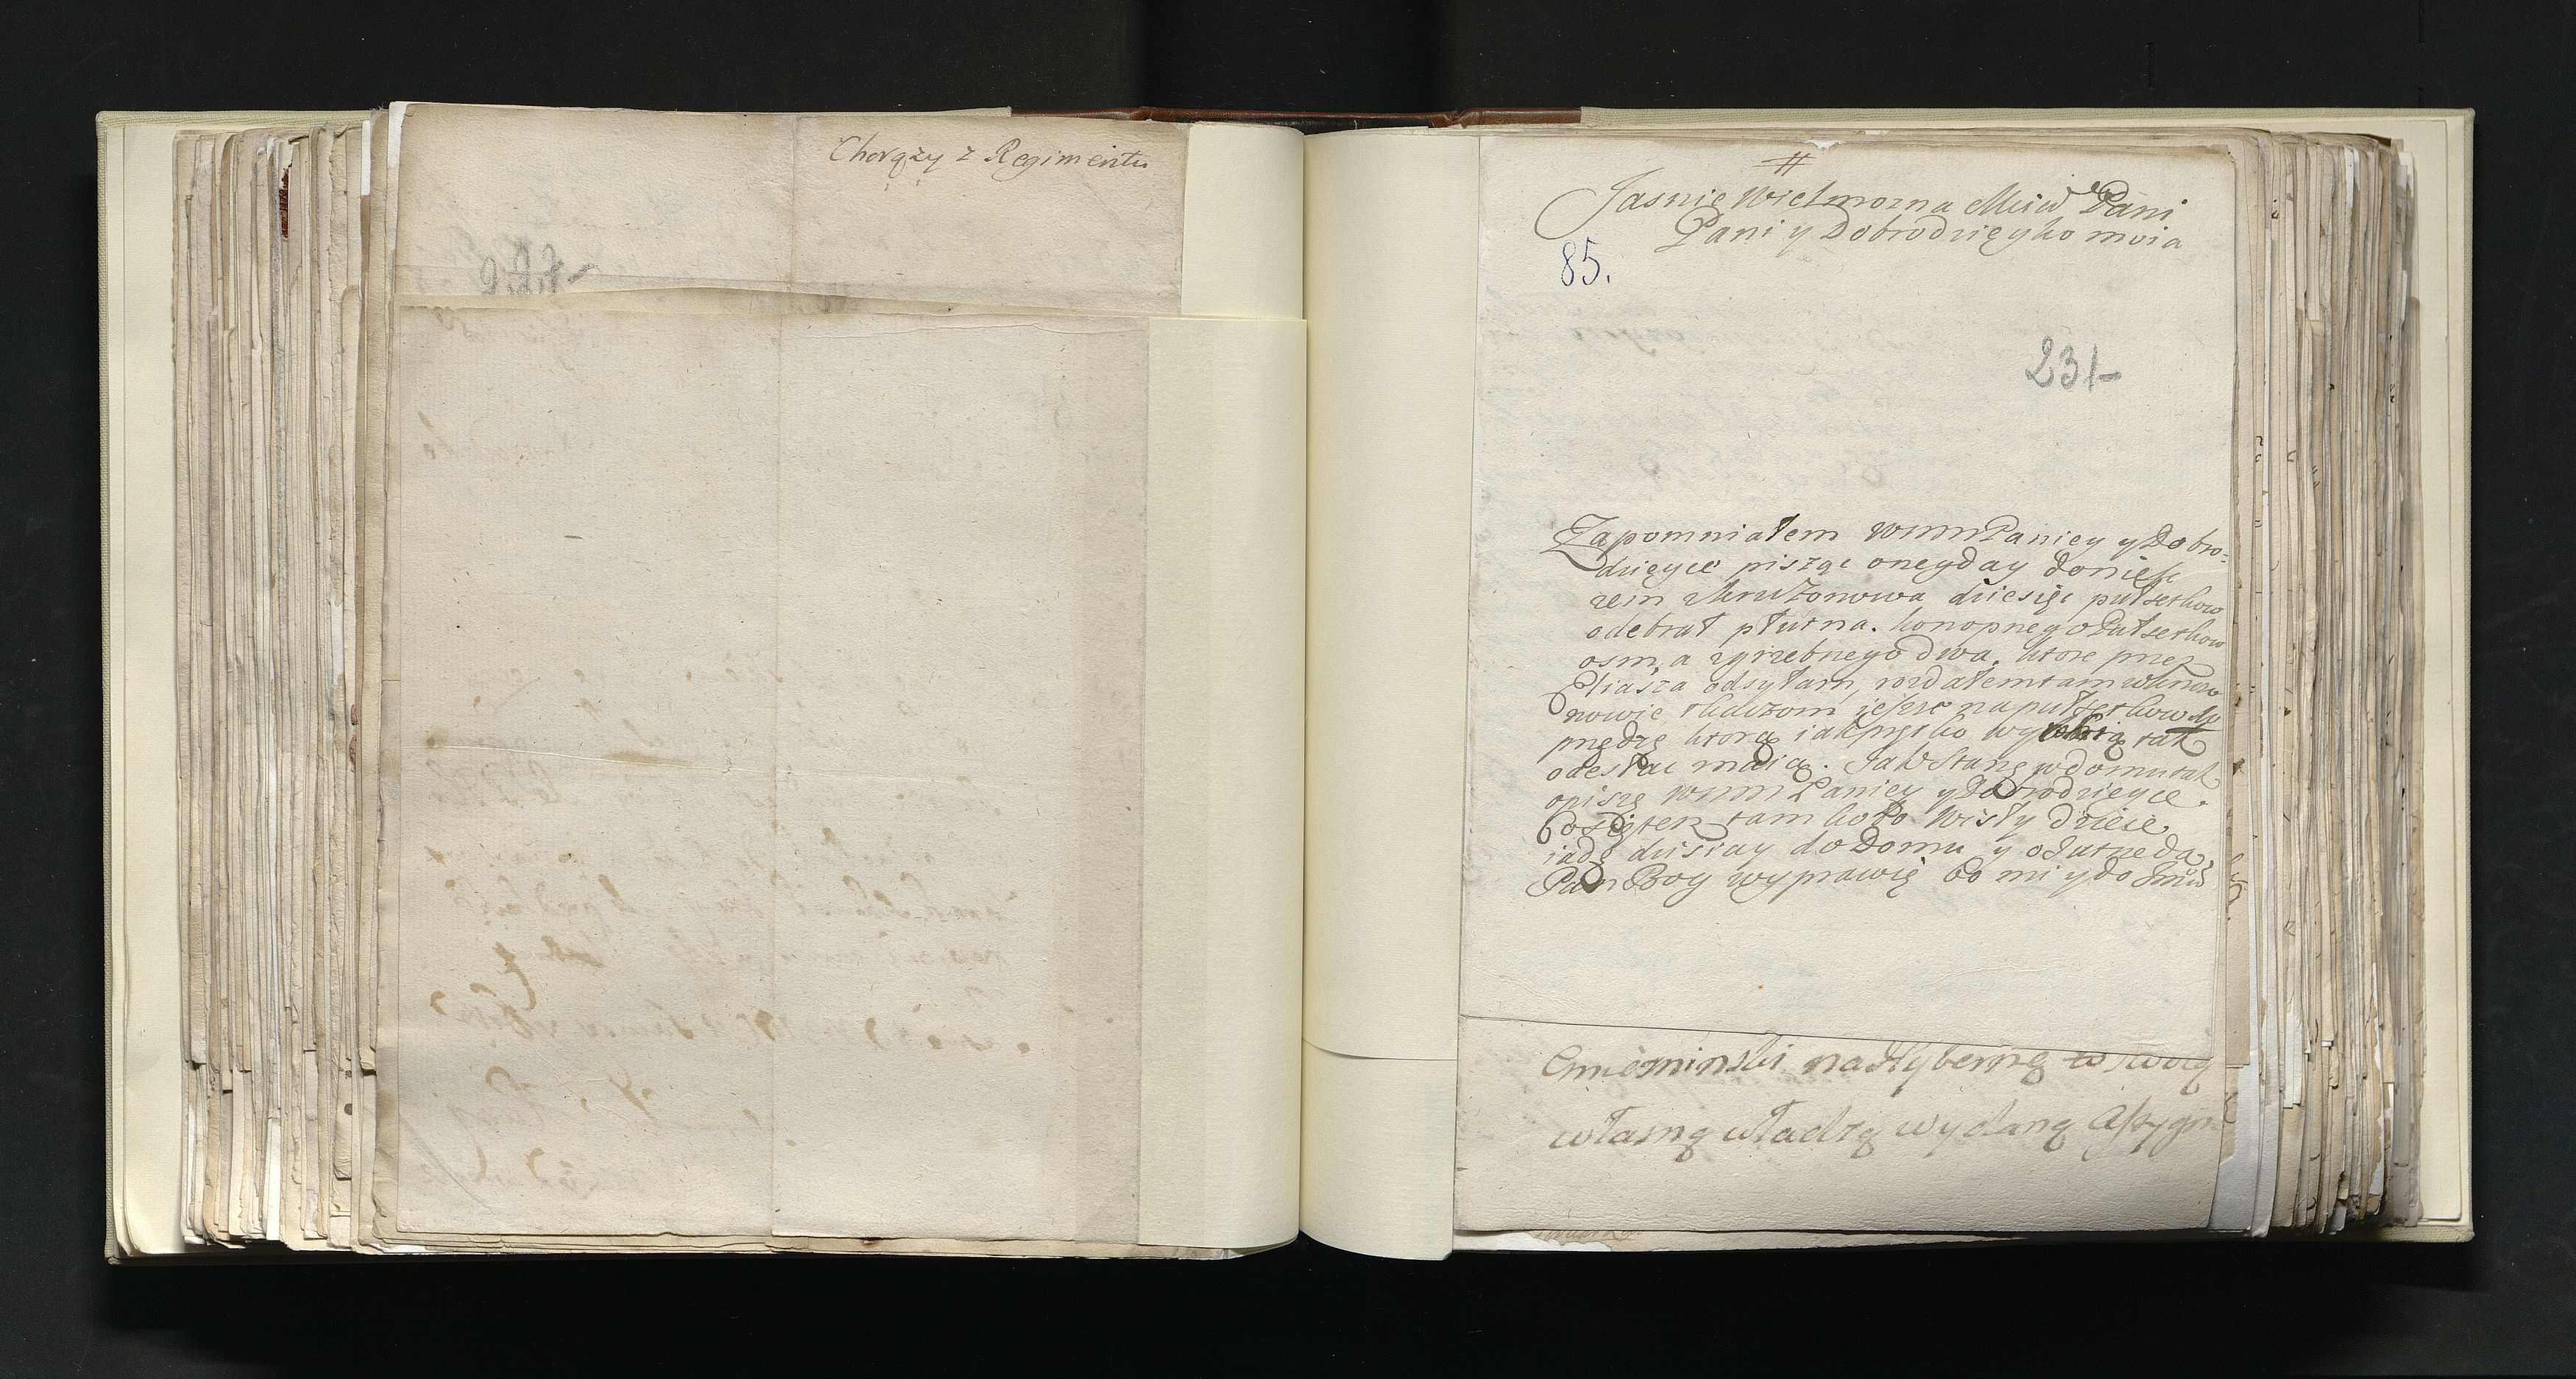 Chorązy z Regimentu
227
#
Jasnie Wielmozna Mśiw Pani
Pani y Dobrodzięyko moia
85.
231
Zapomniałem WMMPaniey y Dobro-
dzięyce pisząc onegday donieść
zem z dziesięc pułsetkow
odebrał płutna. konopnego Pułsetkow
osm, a zgrzebnego dwa. ktore przez
Eliasza odsyłam, rozdałem tam
nowie tkaczom ieszcze na pułsetkow
przędzę ktorą iak prętko wyrobią tak
odesłac maią. Jak Stanę w domu tak
opiszę WMM Paniey y Dobrodzieyce.
Co się tesz tam koło Wisły dzieie
iadę dzisiay do Domu y o Jutrze da
Pan Bog wyprawię bo mi y do
Cmieminski na Hybernę w swoią
własną władzą wydaną Assygn